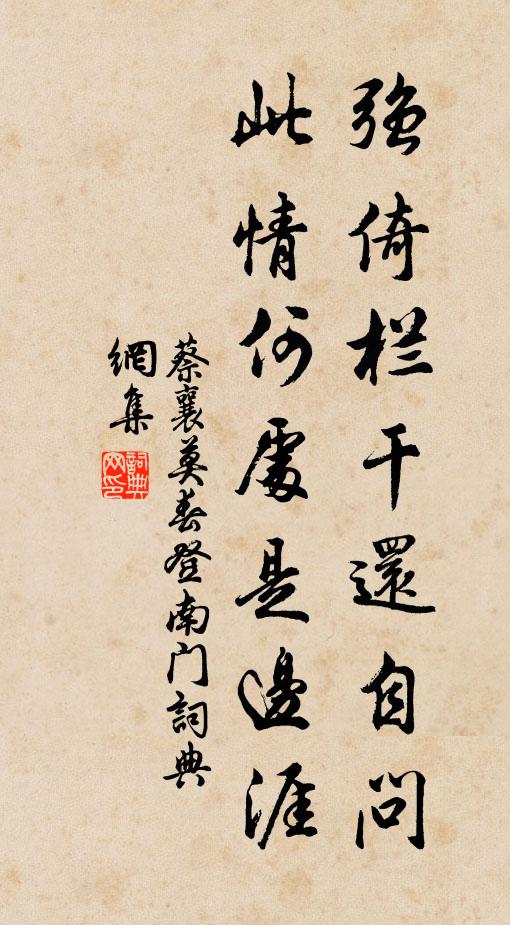 强倚栏干還自問
此情何處是邊涯
蔡襄莫春登南门詞典
網集
詞典網印